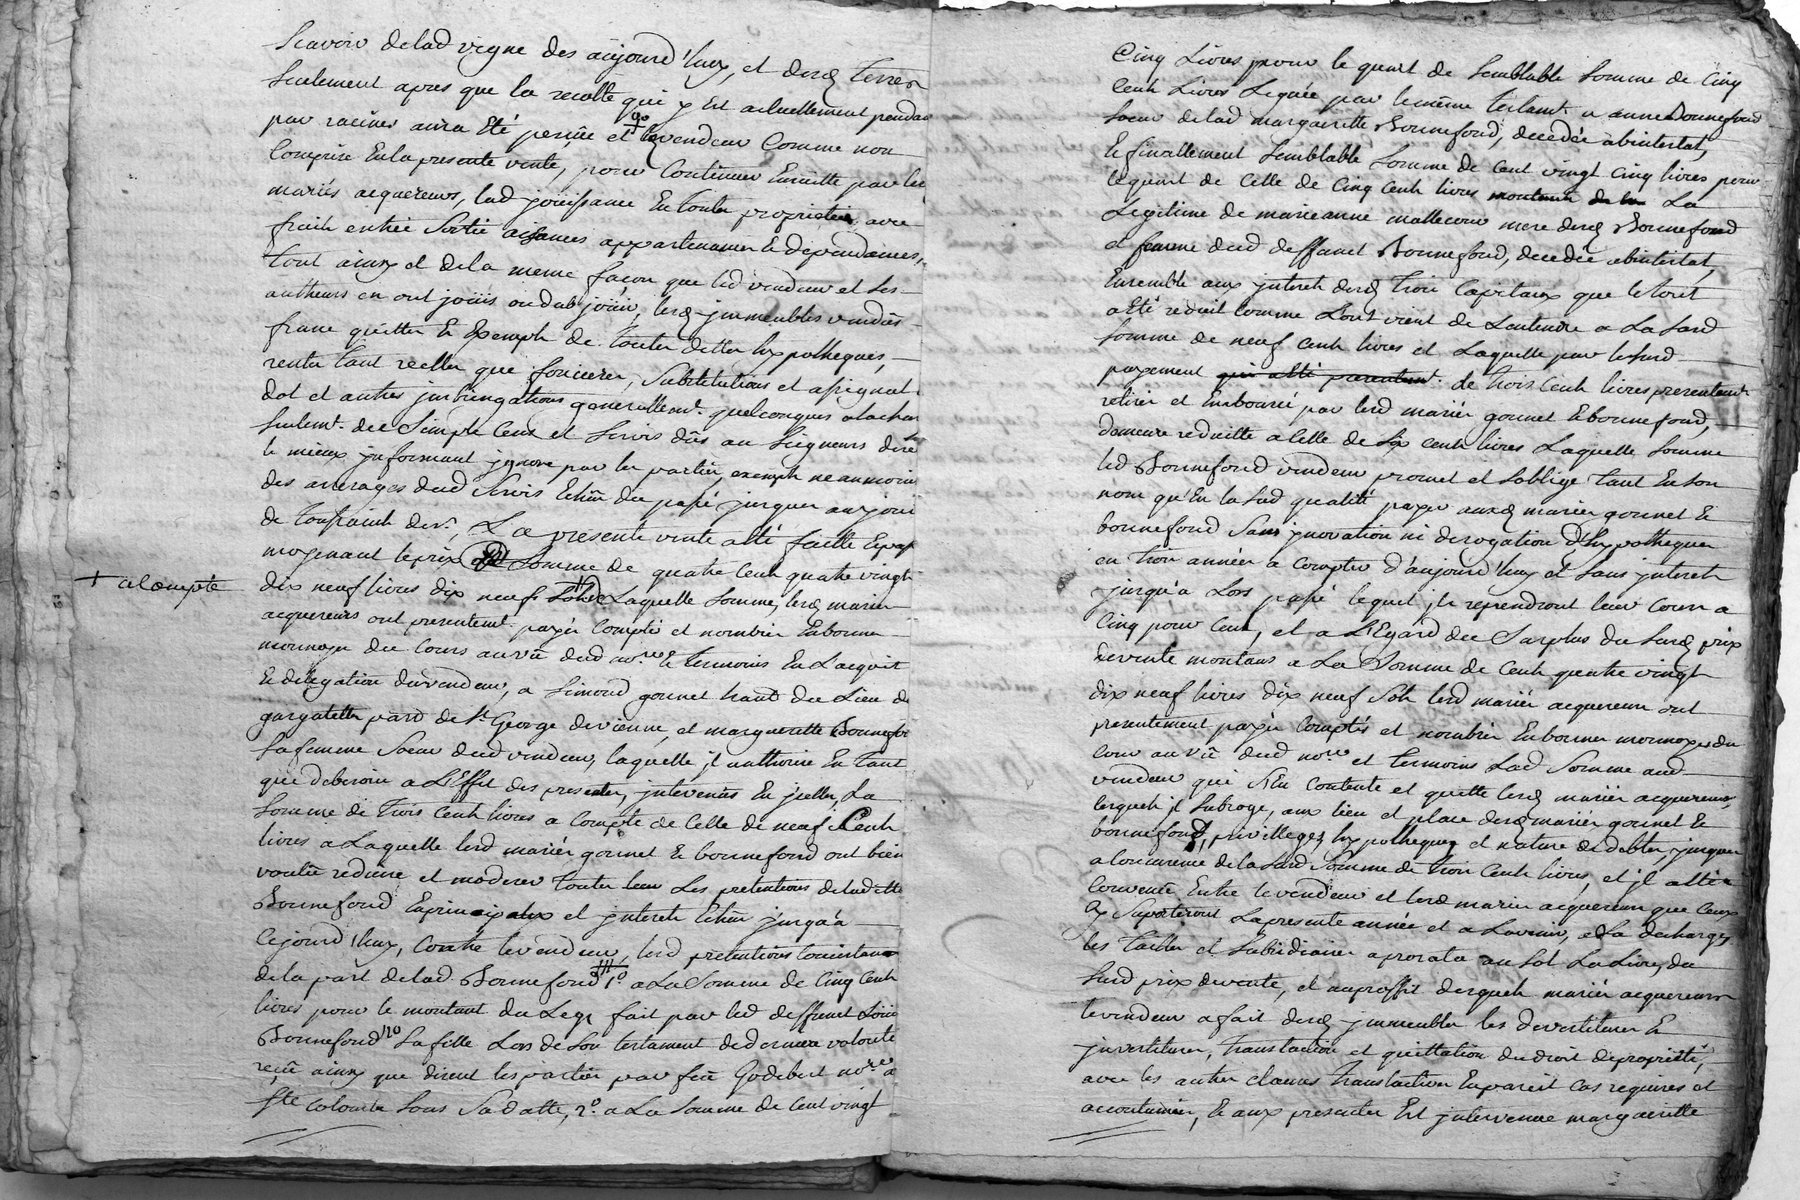 Scavoir delad vigne des aujourd'huy, et desd terres
seulement apres que la recolte qui y est actuellement pendan
par racines aura été perçüe et levendeur Comme non
Comprise En la presente vente, pour Continuer Ensuitte par les
mariés acquereurs, lad jouissance En toute proprieté, avec
fruits entrée Sortie aisances appartenances & dependances,
tout ainsy et dela meme façon que led vendeur et ses
autheurs en ont joüis ou dub joüir, lesd immeubles vendus
franc quitte & Exempts de toutes dettes hypotheques,
rentes tant reelles que foncieres, Substitutions et assignat
dot et autres imbringations generallemt. quelconques alacharge
seulemt. des Simple Cens et Servis dûs au Seigneurs dire
le mieux informant ignoré par les parties, exempts neanmoins
des arrerages dud Servis Echûs du passé jusques aujour
de toussaint der. La presente vente a été faitte & pass
moyenant le prix Somme de quatre Cents quatre vingts
+ alcompte
dix neuf livres dix neuf Sols Laquelle Somme, lesd maries
acquereurs ont presentemt. payés Comptés et nombrés En bonne
monnoye du Cours au vû dud nore. & temoins En L'acquit
& delegation du vendeur, a Simond gonnet habt. du Lieu de
gargatette parr. de St. George de vienne, et margueritte Bonnefo
Sa femme Soeur dud vendeur, laquelle il authorise En tant
que de besoin a L'Effet des presentes, intervenus En icelles, La
Somme de trois Cents livres a Compte de Celle de neuf Cents
livres a Laquelle lesd mariés gonnet & bonnefond ont bien
voulû reduire et moderer toutes leurs Les pretentions deladitte
Bonnefond En principaux et interets Echûs jusqu'à
Cejourd'huy, Contre levendeur, lesd pretentions Consistan
dela part delad Bonnefond 1o. a La Somme de Cinq Cents
livres pour le montant du Legs fait par led deffunct Loüis
Bonnefond Sa fille Lors de Son testament de derniere volonté
reçû ainsy que disent les parties par feû Godebert nore. a
Ste Colombe Sous Sa datte, 2o. a La Somme de Cent vingt
Cinq Livres pour le quart de Semblable Somme de Cinq
Cents Livres Leguée par le meme testamt. a anne Bonnefond
Soeur delad margueritte Bonnefond, decedée abintestat,
& finallement Semblable Somme de Cent vingt Cinq livres pour
le quart de Celle de Cinq Cents livres montant de la La
Legitime de marieanne mallecour mere desd Bonnefond
et femme dud deffunct Bonnefond, decedée abintestat,
Ensemble aux interets desd trois Capitaux que le tout
a été reduit Comme L'ont vient de L'entendre a La Susd
Somme de neuf Cents livres et Laquelle par le susd
payement qui a été presentemt. de trois Cents livres presentemt.
retirée et Emboursée par lesd mariés gonnet & bonnefond,
demeure reduitte a Celle de Six Cents livres Laquelle Somme
led Bonnefond vendeur promet et Soblige tant En Son
nom qu'En la Susd qualité payer auxd mariés gonnet &
bonnefond Sans inovation ni derogation d'hypotheques
en trois années a Compter d'aujourd'huy et Sans interets
jusqu'à Lors passé lequel ils reprendront leur Cours a
Cinq pour Cent, et a L'Egard du Surplus du Susd prix
devente montant a La Somme de Cent quatre vingts
dix neuf livres dix neuf Sols lesd mariés acquereurs ont
presentement payés Comptés et nombrés En bonnes monnoyes du
Cour au vû dud nore. et temoins Lad Somme aud
vendeur qui S'En Contente et quitte lesd mariés acquereurs
lesquels il Subroge, aux lieu et place desd mariés gonnet &
bonnefond, privilleges hypotheques et nature de debtes, jusques
a Concurence de la Susd Somme de trois Cents livres, et il a été
Convenû Entre le vendeur et lesd maries acquereurs que Ceux
cy Suporteront La presente année et a L'avenir, a La decharge
les tailles et Subsidiaires a prorata au Sol La Livre, du
Susd prix devente, et au proffit desquels mariés acquereurs
levendeur a fait desd immeubles les devestitures &
investitures, translaction et quittation du droit de proprieté,
avec les autres clauses translactives En pareil Cas requises et
accoutumées, & aux presentes Est intervenue margueritte